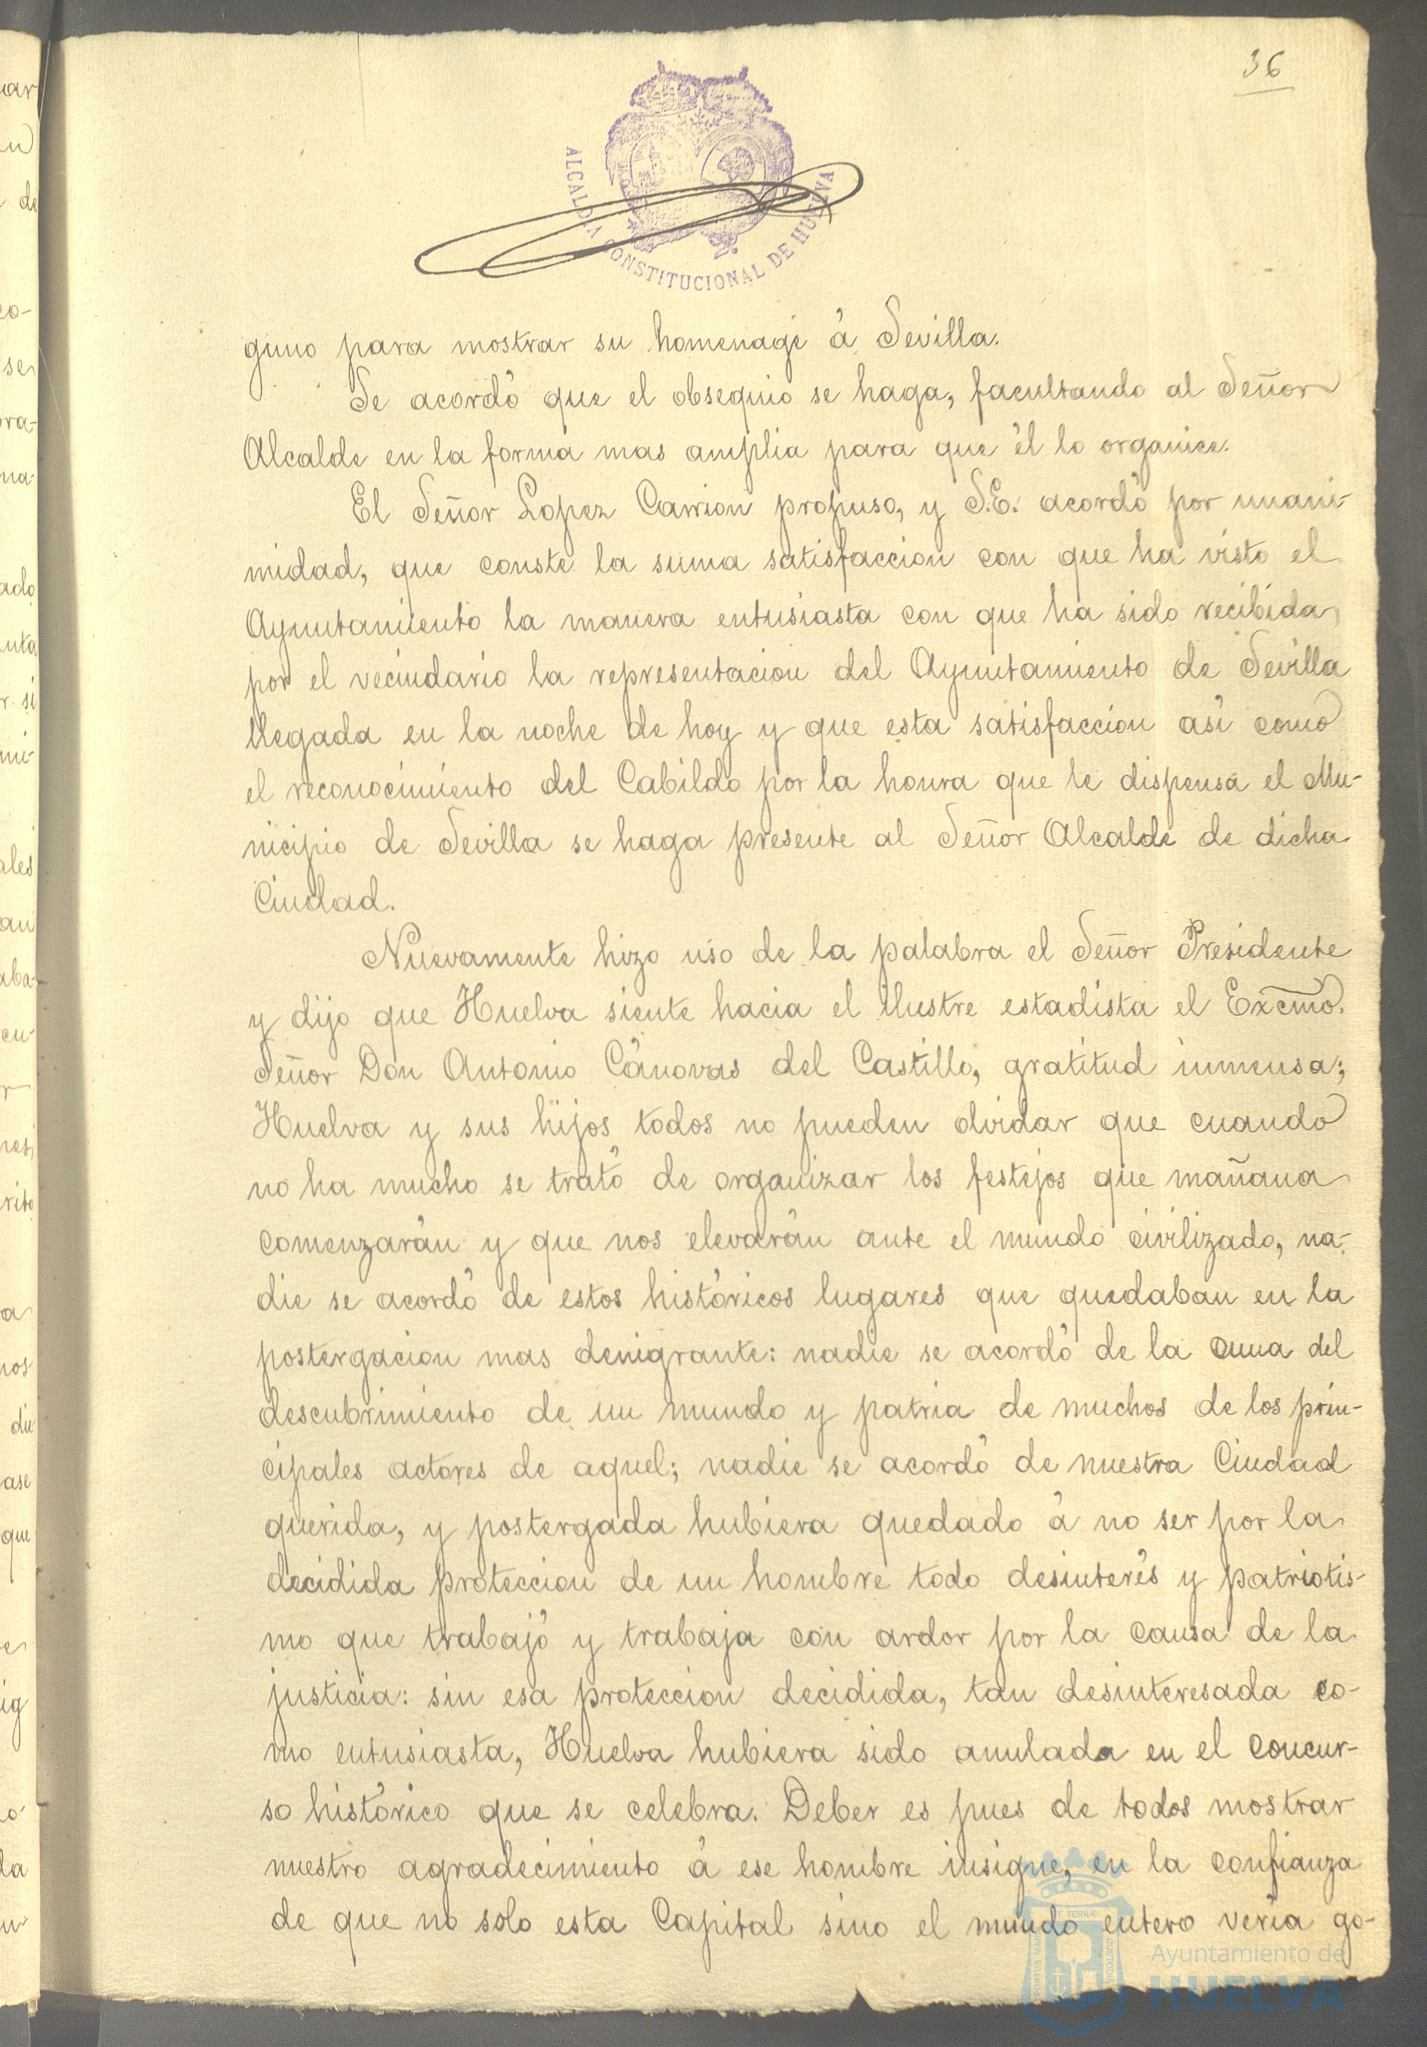 36
ALCALDIA CONSTITUCIONAL DE HUELVA
guno para mostrar su homenage á Sevilla.
Se acordó que el obsequio se haga, facultando al Señor
Alcalde en la forma mas amplia para que él lo organice.
El Señor Lopez Carrion propuso, y S.E. acordó por unani-
midad, que conste la suma satisfaccion con que ha visto el
Ayuntamiento la manera entusiasta con que ha sido recibida
por el vecindario la representacion del Ayuntamiento de Sevilla
llegada en la noche de hoy y que esta satisfaccion así como
el reconocimiento del Cabildo por la honra que le dispensa el Mu-
nicipio de Sevilla se haga presente al Señor Alcalde de dicha
Ciudad.
Nuevamente hizo uso de la palabra el Señor Presidente
y dijo que Huelva siente hacia el ilustre estadista el Excmo.
Señor Don Antonio Cánovas del Castillo, gratitud inmensa;
Huelva y sus hijos todos no pueden olvidar que cuando
no ha mucho se trató de organizar los festejos que mañana
comenzarán y que nos elevarán ante el mundo civilizado, na-
die se acordó de estos históricos lugares que quedaban en la
postergacion mas denigrante: nadie se acordó de la cuna del
descubrimiento de un mundo y patria de muchos de los prin-
cipales actores de aquel; nadie se acordó de nuestra Ciudad
querida, y postergada hubiera quedado á no ser por la
decidida proteccion de un hombre todo desinterés y patriotis-
mo que trabajó y trabaja con ardor por la causa de la
justicia: sin esa proteccion decidida, tan desinteresada co-
mo entusiasta, Huelva hubiera sido anulada en el concur-
so histórico que se celebra. Deber es pues de todos mostrar
nuestro agradecimiento á ese hombre insigne, en la confianza
de que no solo esta Capital sino el mundo entero vería go-
Ayuntamiento de
HUELVA